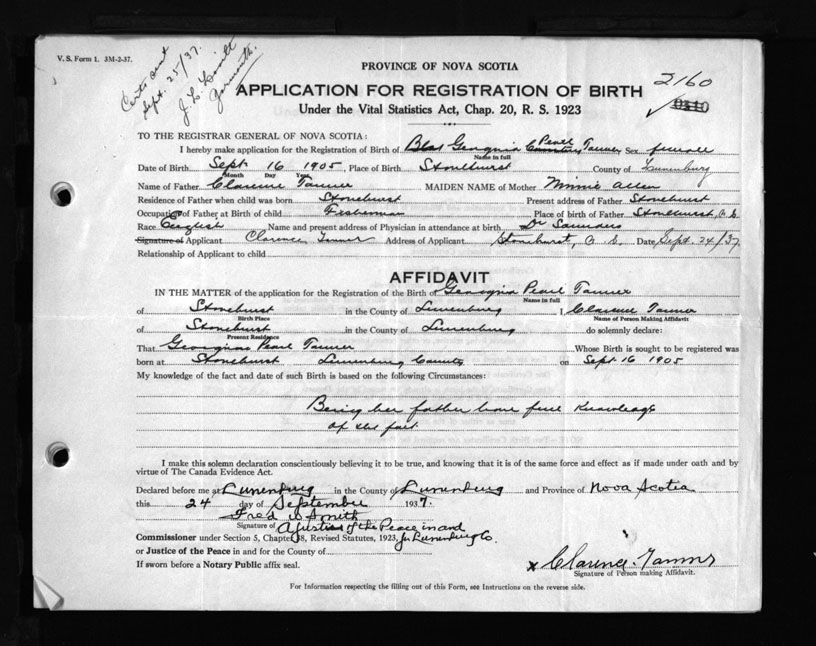 V. S. Form 1. 3M-2-37.
Certs sent
Sept. 25/37.
J. L.
Yarmouth.
PROVINCE OF NOVA SCOTIA
APPLICATION FOR REGISTRATION OF BIRTH
2160
Under the Vital Statistics Act, Chap. 20, R. S. 1923
TO THE REGISTRAR GENERAL OF NOVA SCOTIA:
I hereby make application for the Registration of Birth of Georgnia Pearl Tanner Sex female
Name in full
Date of Birth Sept 16 1905, Place of Birth Stonehurst County of Lunenburg
Month Day Year
Name of Father Clarence Tanner MAIDEN NAME of Mother Minnie Allen
Residence of Father when child was born Stonehurst Present address of Father Stonehurst
Occupation of Father at Birth of child Fisherman Place of birth of Father Stonehurst,
Race English Name and present address of Physician in attendance at birth Dr Saunders
Signature of Applicant Clarence Tanner Address of Applicant Stonehurst, Date Sept. 24/37
Relationship of Applicant to child
AFFIDAVIT
IN THE MATTER of the application for the Registration of the Birth of Georgnia Pearl Tanner
Name in full
of Stonehurst in the County of Lunenburg I Clarence Tanner
Birth Place Name of Person Making Affidavit
of Stonehurst in the County of Lunenburg do solemnly declare:
Present Residence
That Georgnia Pearl Tanner Whose Birth is sought to be registered was
born at Stonehurst Lunenburg County on Sept. 16 1905
My knowledge of the fact and date of such Birth is based on the following Circumstances:
Being her father have full Knowleage
of the fact
I make this solemn declaration conscientiously believing it to be true, and knowing that it is of the same force and effect as if made under oath and by
virtue of The Canada Evidence Act.
Declared before me at Lunenburg in the County of Lunenburg and Province of Nova Scotia
this 24 day of September 1937.
Fred Smith
Signature of A Justice of the Peace in and
Commissioner under Section 5, Chapter 38, Revised Statutes, 1923, for Lunenburg Co.
or Justice of the Peace in and for the County of
If sworn before a Notary Public affix seal.
x Clarence Tanner
Signature of Person making Affidavit.
For Information respecting the filling out of this Form, see Instructions on the reverse side.